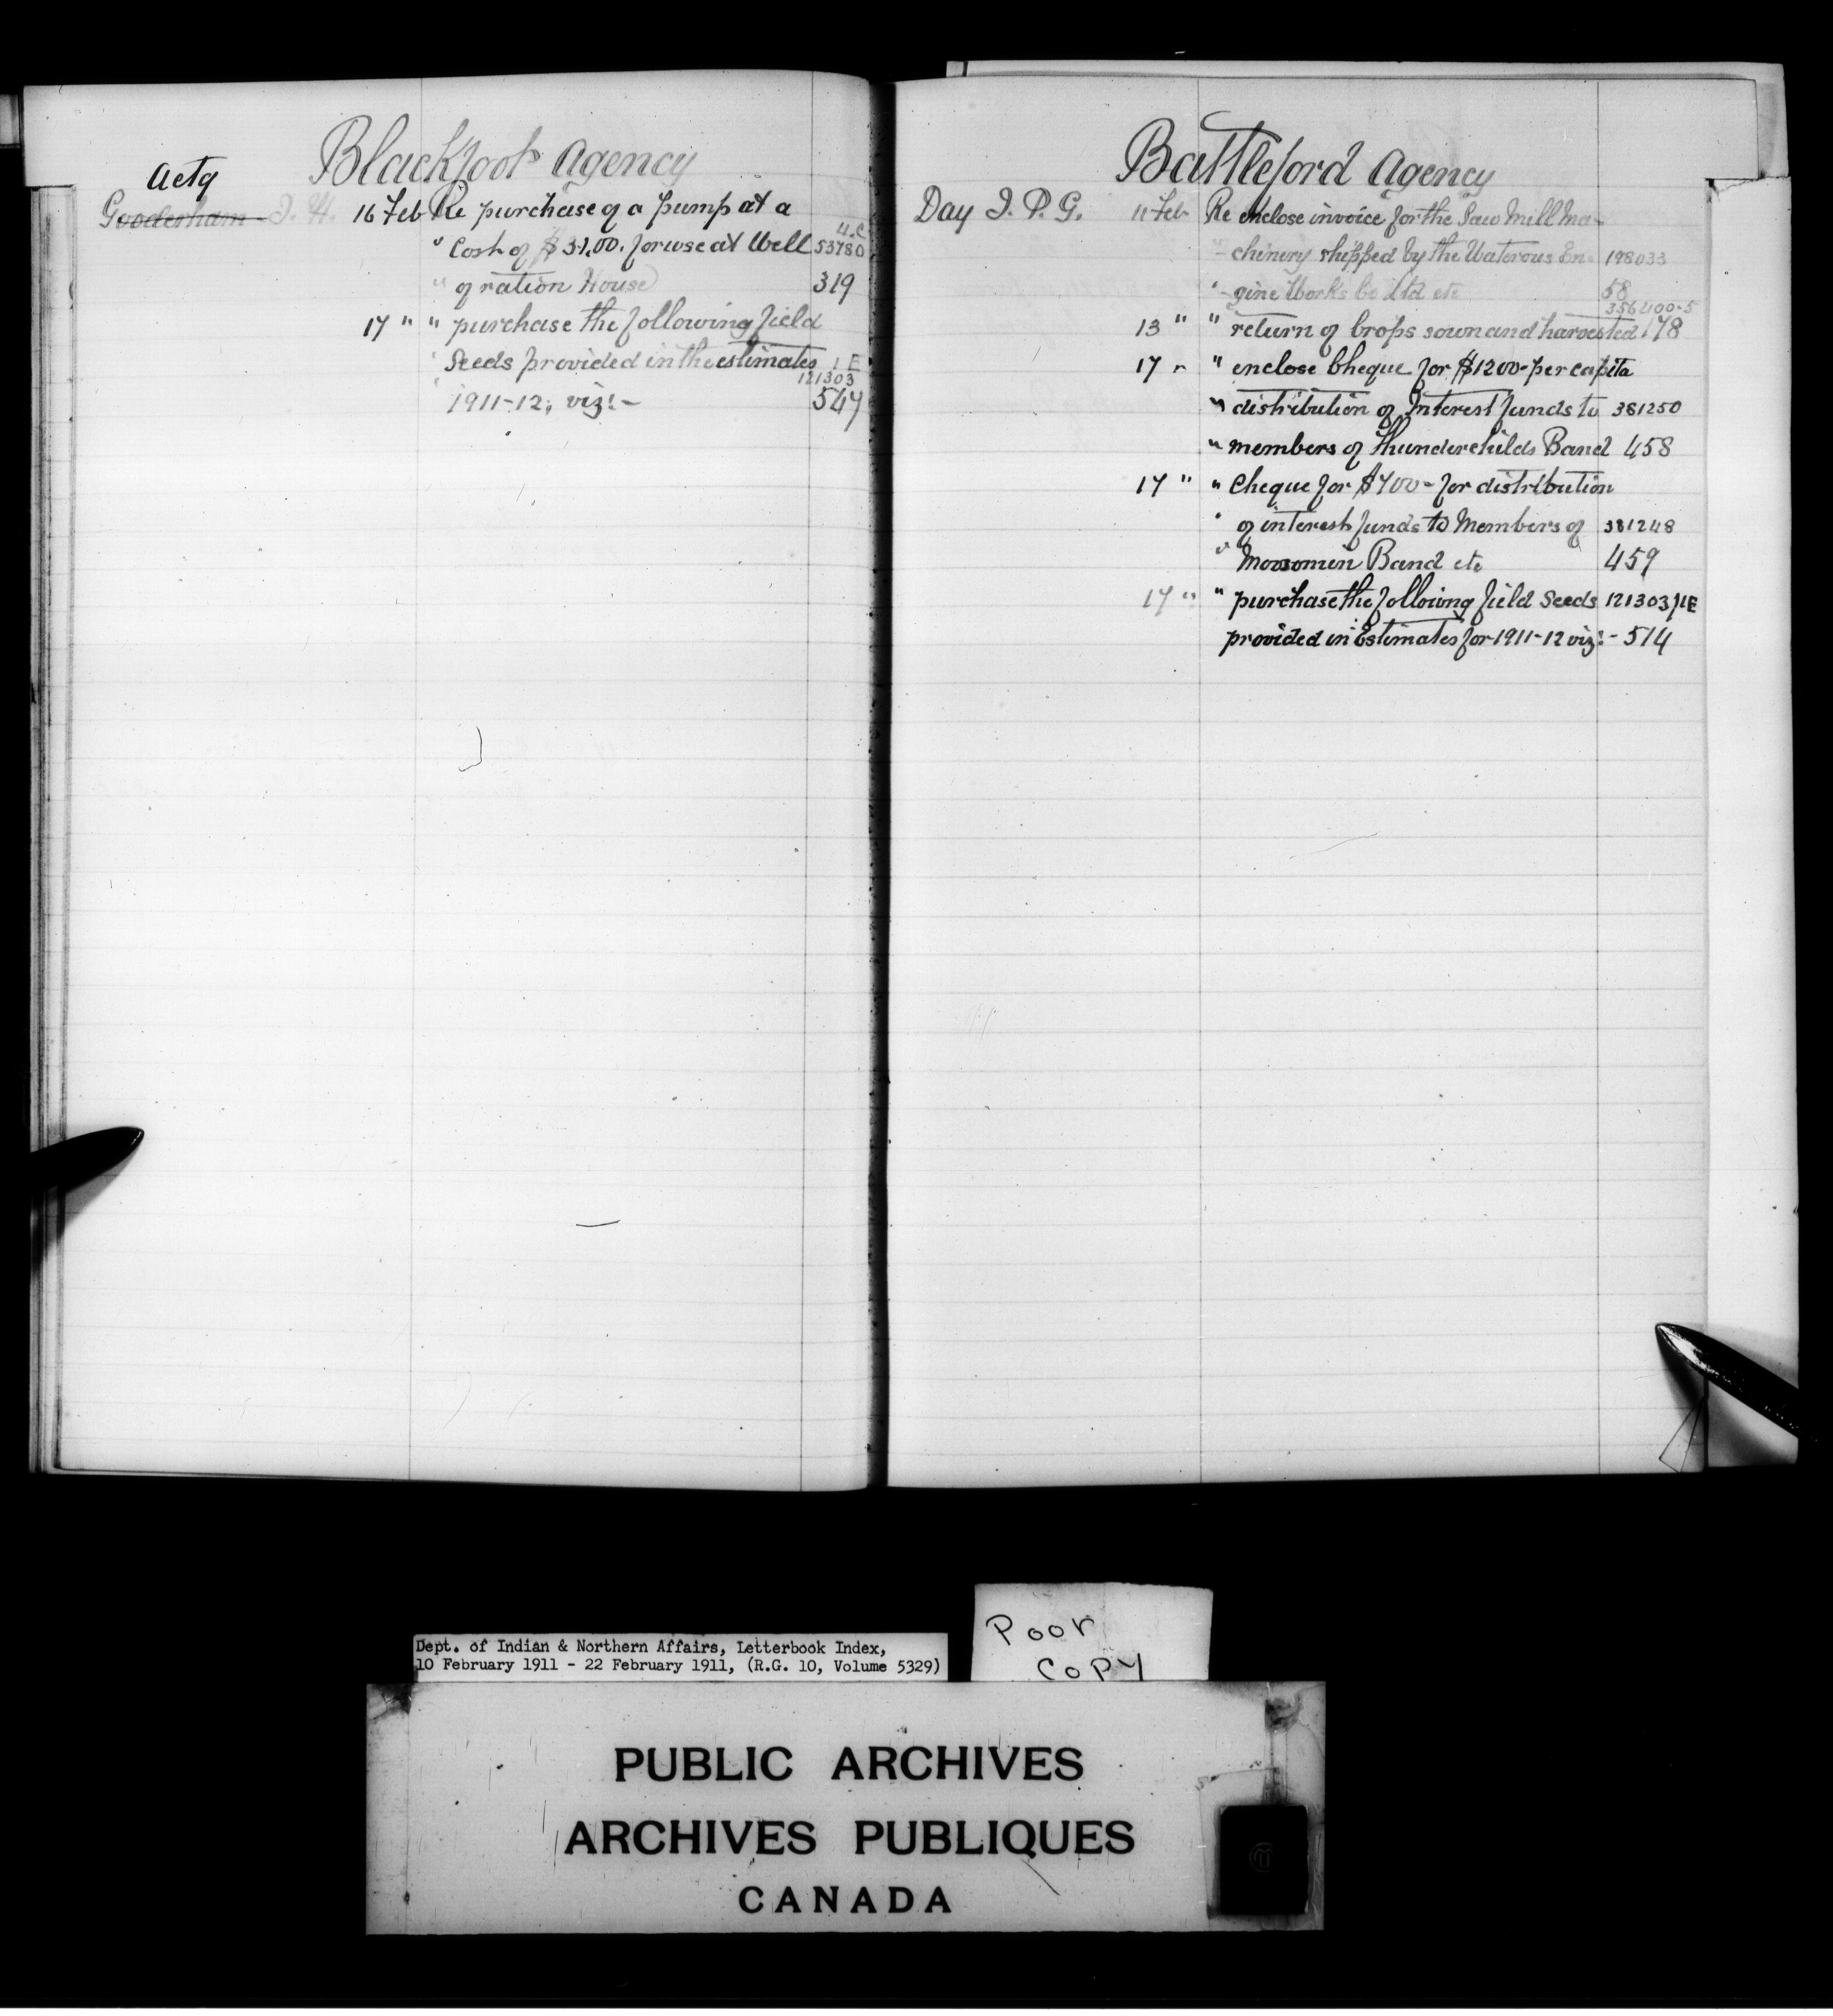 Blackfoot Agency
Actg
Gooderham J. H. 16 Feb Re purchase of a pump at a
" Cost of $31.00. for use at Well 4.C 53780
" of ration House 319
17 " " purchase the following field
" Seeds provided in the estimates 1 E
" 1911-12, viz:- 121303 547
Battleford Agency
Day J. P. G. 11 Feb Re enclose invoice for the Saw Mill Ma-
" chinery shipped by the Waterous En- 198033
" gine Works Co Ltd etc 58
13 " " return of Crops sown and harvested 356400-5 178
17 " " enclose Cheque for $1200- per capita
" distribution of Interest funds to 381250
" members of Thunderchilds Band 458
17 " " Cheque for $700- for distribution
" of interest funds to Members of 381248
" Moosomin Band etc 459
17 " " purchase the following field Seeds 121303/1E
provided in Estimates for 1911-12 viz:- 514
Dept. of Indian & Northern Affairs, Letterbook Index,
10 February 1911 - 22 February 1911, (R.G. 10, Volume 5329)
Poor
Copy
PUBLIC ARCHIVES
ARCHIVES PUBLIQUES
CANADA